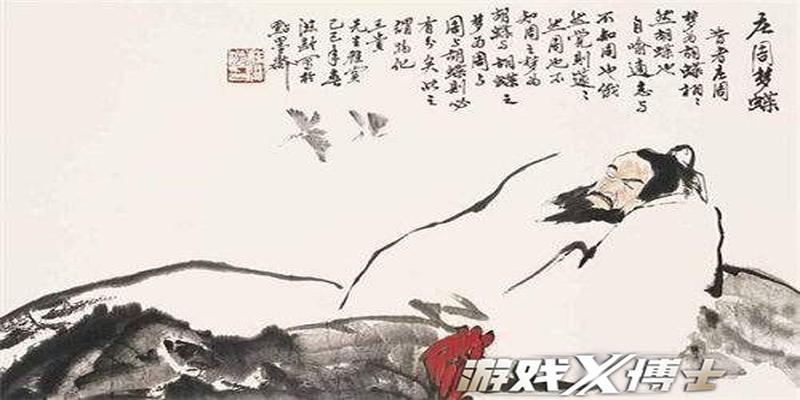 庄周梦蝶
昔者庄周
梦为胡蝶栩〻
然胡蝶也
自喻適志与
不知周也俄
然觉则蘧〻
然周也不
知周之梦为
胡蝶与胡蝶之
梦为周与
周与胡蝶则必
有分矣此之
谓物化
先生雅赏
己巳年春
写於
游戏X博士